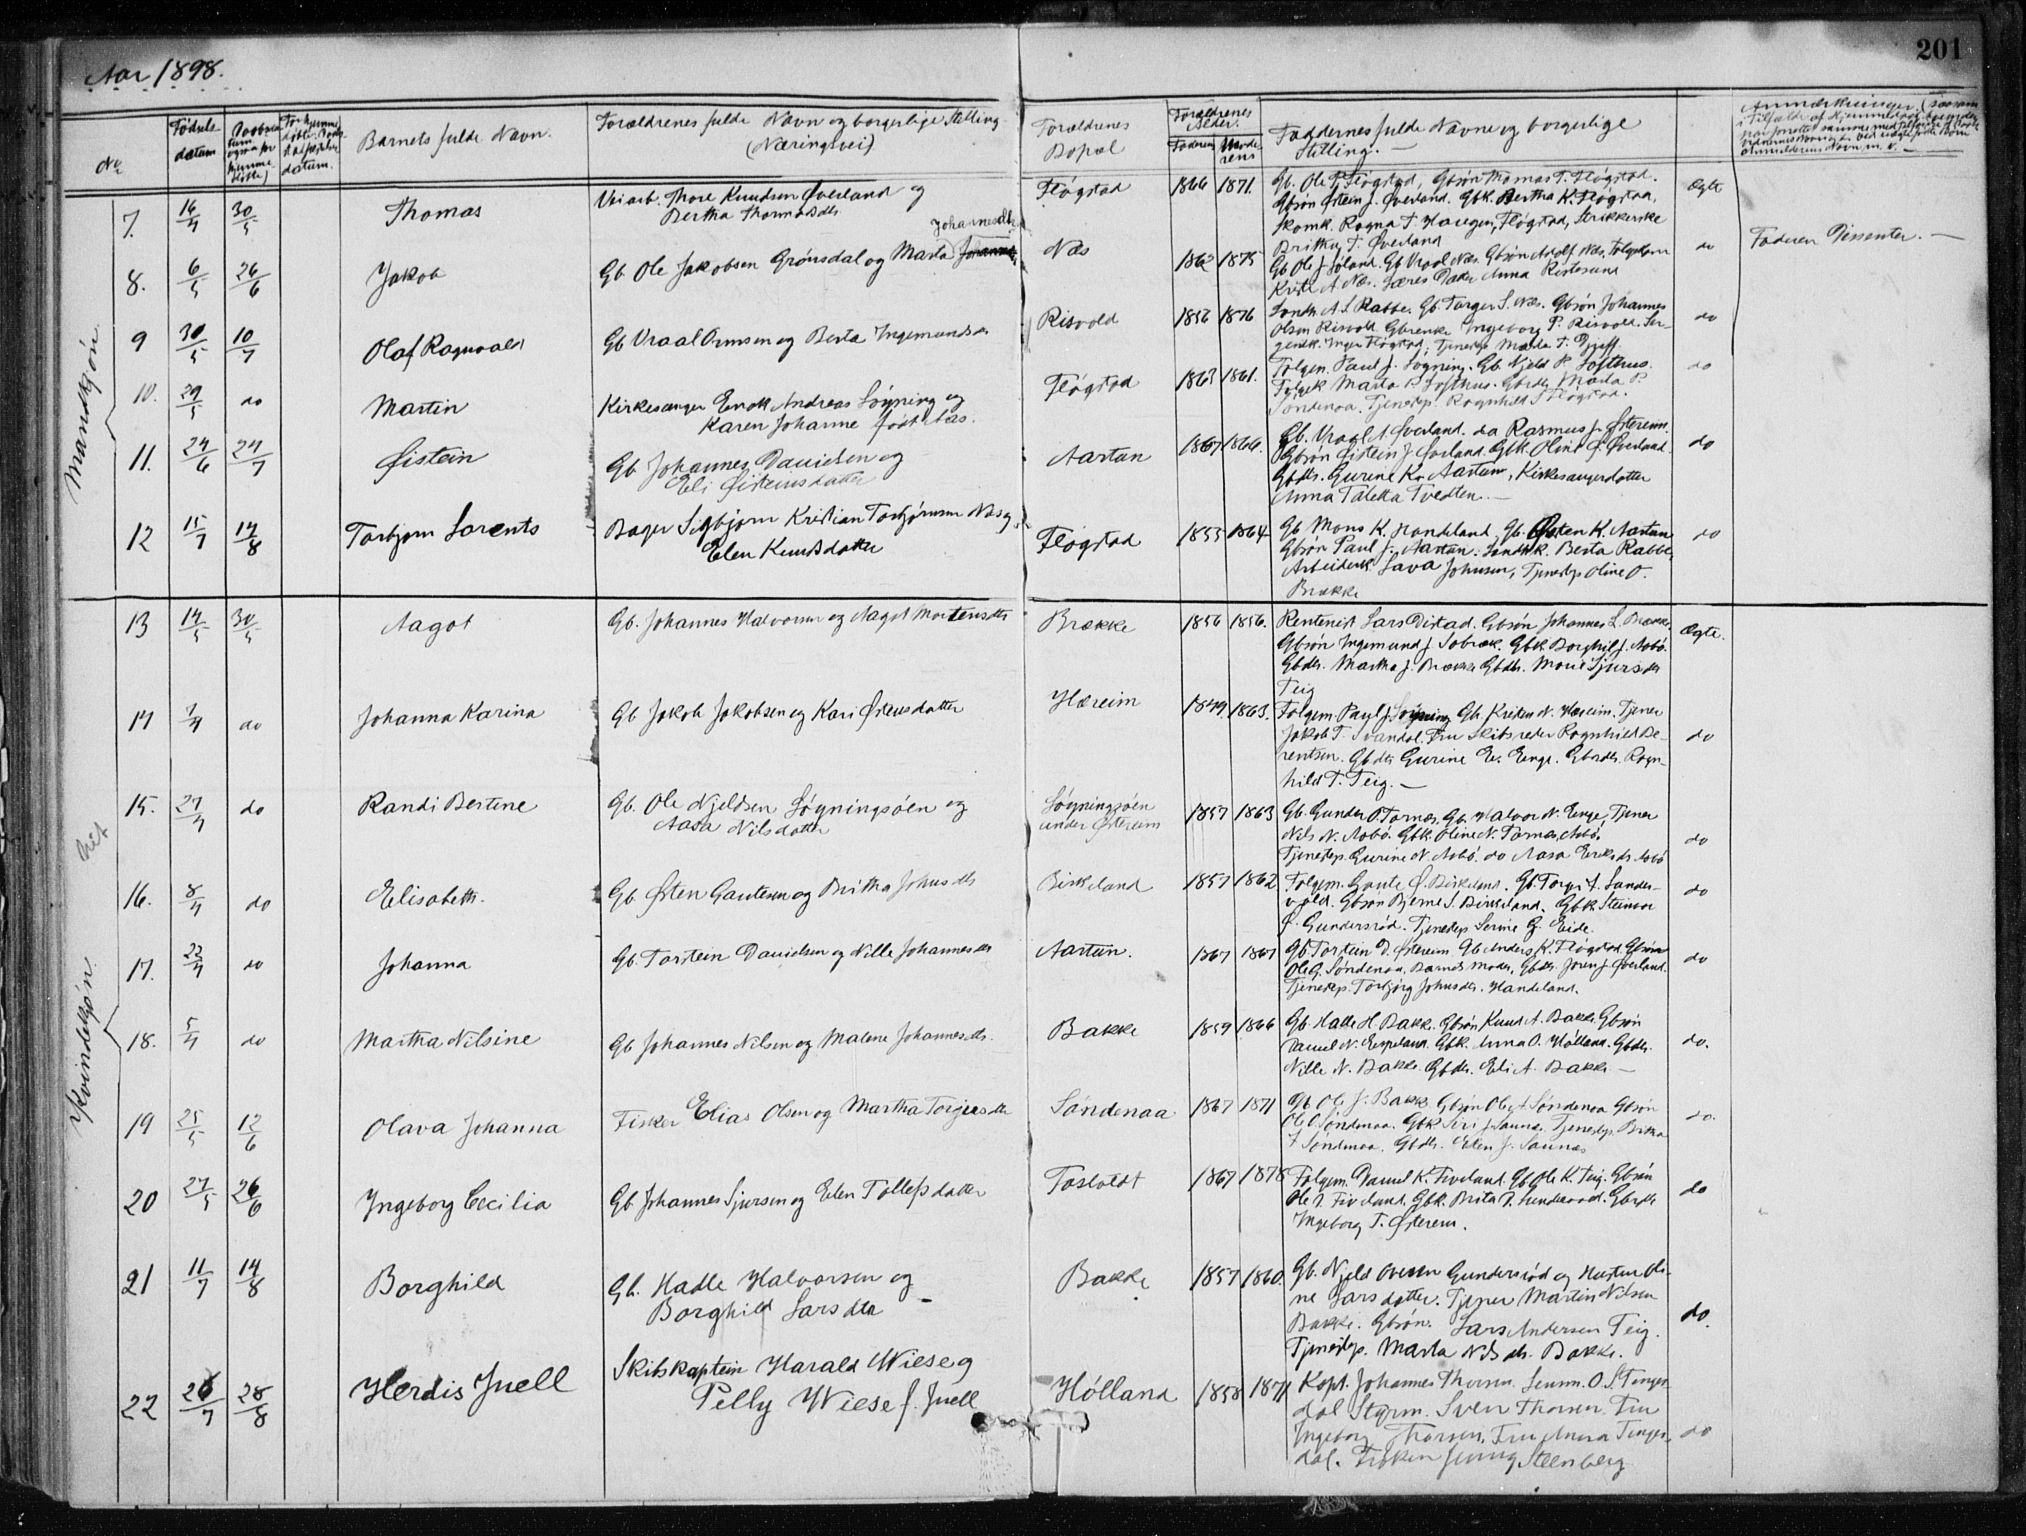 Aar 1898.
201
No
Fødsels datum
Barnets fulde Navn.
Forældrenes fulde Navn og borgerlige Stilling (Næringsvei)
Forældrenes Bopæl
Forældrenes Alder.
Faderens
Moderens
Faddernes fulde Navne og borgerlige Stilling. —
Mandkjøn
7. 14/4 30/5 Thomas
Veiarb. Thore Knudsen Øverland og
Bertha Thomasdtr
Fløgstad 1866 1871.
Gb. Ole P. Fløgstad, Gbsøn Thomas T. Fløgstad.
Gbsøn Østein J. Øverland. Gbk. Bertha K. Fløgstad,
Skomk. Ragna T. Haugen, Fløgstad, Strikkerske
Britha T. Øverland
Ægte
8. 6/5 26/6 Jakob
Johannesdtr
Gb. Ole Jakobsen Grønsdal og Marta
Næs 1862 1875
Gb Ole J. Søland. Gb Vraal Næs. Gbsøn Adolf Næs.
Kristi A. Næs. Anna
do
Faderen Dissenter. —
9 30/5 10/7 Olaf Ragnvald
Gb Vraal Ormsen og Berta Ingemundsdtr
Risvold 1856 1876
Landh. A. S. Rabbe. Gb. Torger S. Næs. Gbsøn Johannes
Olsen Risvold. Gbrenke Ingeborg P. Risvold.
Inger Fløgstad, Tjenestp. Marta T.
do
10. 29/5 do Martin
Kirkesanger Enok Andreas Løyning og
Karen Johanne født Aas.
Fløgstad 1863 1861.
Følgem. Paul J. Løyning. Gb. Njeld P. Lofthus.
Følgek Marta P. Lofthus. Gbrdtr Marta P.
Søndenaa. Tjenestp. Ragnhild S Fløgstad.
do
11. 24/6 24/7 Øistein
Gb. Johannes Danielsen og
Eli Øisteinsdatter
Aartun 1867 1866.
Gb. Vraal A. Øverland. da Rasmus J. Østereim.
Gbsøn Øistein J. Øverland. Gbk. Oline Ø. Øverland.
Gbdtr. Gurine K. Aartun, Kirkesangerdatter
Anna Taletta Tvedten. —
do
12 15/7 14/8 Torbjørn Lorents
Bager Sigbjørn Kristian Torbjørnsen Næs og
Elen Knudsdatter
Fløgstad 1855 1864
Gb. Mons K. Handeland, Gb. Østen K. Aartun
Gbsøn Paul J. Aartun. Landhk. Berta Rabbe,
Arbeiderk. Lava Johnsen, Tjenestp Oline O.
Brække
do
Kvindekjøn
13 14/5 30/5 Aagot
Gb. Johannes Halvorsen og Aagot Mortensdtr
Brække 1856 1856.
Rentenist Lars Østad. Gbsøn Johannes L. Brække
Gbsøn Ingemund J. Sobræk. Gbk Borghil J. Aabø.
Gbdtr. Martha J. Brække Gbdtr. Marie Sjursdtr
Teig
Ægte.
14 7/4 do Johanna Karina
Gb Jakob Jakobsen og Kari Østensdatter
Hæreim 1849 1863.
Følgem Paul J. Løyning Gb. Kristen N. Hæreim. Tjener
Jakob T. Svandal. Fru Skibsreder Ragnhild Be-
rentsen. Gbdtr Gurine E. Enge. Gbrdtr. Ragn-
hild T. Teig. —
do
15. 27/4 do Randi Bertine
Gb. Ole Njeldsen Løyningsøen og
Aasa Nilsdatter
Løyningsøen
under Østereim 1857 1863
Gb. Gunder O. Tornes. Gb. Halvor N. Enge, Tjener
Nils N. Aabø. Gbk. Oline N. Tornes, Aabø.
Tjenestp. Gurine N. Aabø. do Aasa Eriksdtr. Aabø
do
16. 8/4 do Elisabeth.
Gb. Østen Gautesen og Britha Johnsdtr
Birkeland 1857 1862
Følgem. Gaute Ø. Birkeland. Gb. Torger A. Sunder-
vold. Gbsøn Bjerne S. Birkeland. Gbk. Steinvor
P. Gundersrød. Tjenestp Serine G. Eide.
do
17. 22/4 do Johanna
Gb. Torstein Danielsen og Nille Johannesdtr
Aartun. 1867 1867
Gb Torstein D. Østereim. Gb. Anders K. Fløgstad. Gbsøn
Ole G. Søndenaa, Barnets moder, Gbdtr. Joren J. Øverland.
Tjenestp. Torbjørg Johnsdtr. Handeland.
do
18. 5/4 do Martha Nilsine
Gb Johannes Nilsen og Malene Johannesdtr.
Bakke 1859 1866
Gb. Halle H. Bakke. Gbsøn Knud A. Bakke Gbsøn
Daniel N. Espeland. Gbk. Anna O. Hølland. Gbdtr.
Nille N. Bakke. Gbdtr. Eli A. Bakke. —
do.
19 25/5 12/6 Olava Johanna
Fisker Elias Olsen og Martha Torgersdtr
Søndenaa 1867 1871
Gb Ole J. Bakke. Gbsøn Ole A. Søndenaa Gbsøn
Ole O. Søndenaa. Gbk Siri J Saunes. Tjenestp. Britha
T Søndenaa. Gbdtr. Elen J. Saunes
do.
20 27/5 26/6 Ingeborg Cecilia
Gb. Johannes Sjursen og Elen Tollefsdatter
Fostvedt 1867 1878
Følgem. Daniel K. Fiveland. Gb Ole K. Teig. Gbsøn
Ole D. Fiveland. Gbk. Brita Gbrdtr
Ingeborg T. Østereim.
do
21 11/7 14/8 Borghild
Gb. Hadle Halvorsen og
Borghild Larsdtr —
Bakke 1857 1860.
Gb. Njeld Ovesen Gundersrød og Hustru Oli-
ne Larsdatter. Tjener Martin Nilsen
Bakke. Gbsøn. Lars Andersen Teig.
Tjenestp. Marta Nilsdtr. Bakke.
do.
22 26/7 28/8 Herdis Juell
Skibskaptein Harald Wiese og
Pelly Wiese f. Juell
Hølland 1858 1871
Kapt. Johannes Thorsen. O. S. Tunges-
dal Styrm. Sven Thorsen. Fru
Ingeborg Thorsen, Fru Anna Tunges-
dal. Frøken Jenny Steenberg
do